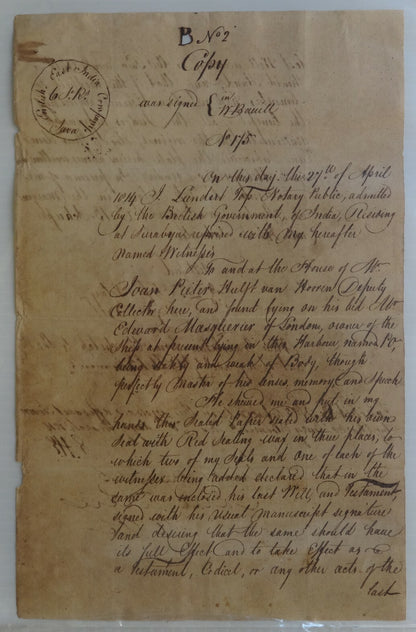 B No 2
Copy
English East India Company
6 St Rs
Java
was signed { in
W Bavill
No 175
On this day the 27th of April
1814 I Landert Top Notary Public, admitted
by the British Government, of India, Residing
at Surabaya repaired with my hereafter
named Witnesses
To and at the House of Mr
Joan Pieter Hulft van Hooren Deputy
Collector here, and found lying on his bed Mr
Edward Masquerier of London, owner of the
Ship at present lying in this Harbour, named
being sickly and weak of Body, though
perfectly Master of his senses, memory and speech
He shewed me and put in my
hands this Sealed Paper sealed with his own
Seal with Red Sealing wax in three places, to
which two of my Seals and one of each of the
witnesses being added declared that in the
same was enclosed his last Will and Testament
signed with his usual manuscript signature
and desiring that the same should have
its full Effect and to take Effect as
a Testament, Codicil, or any other acts of the
last